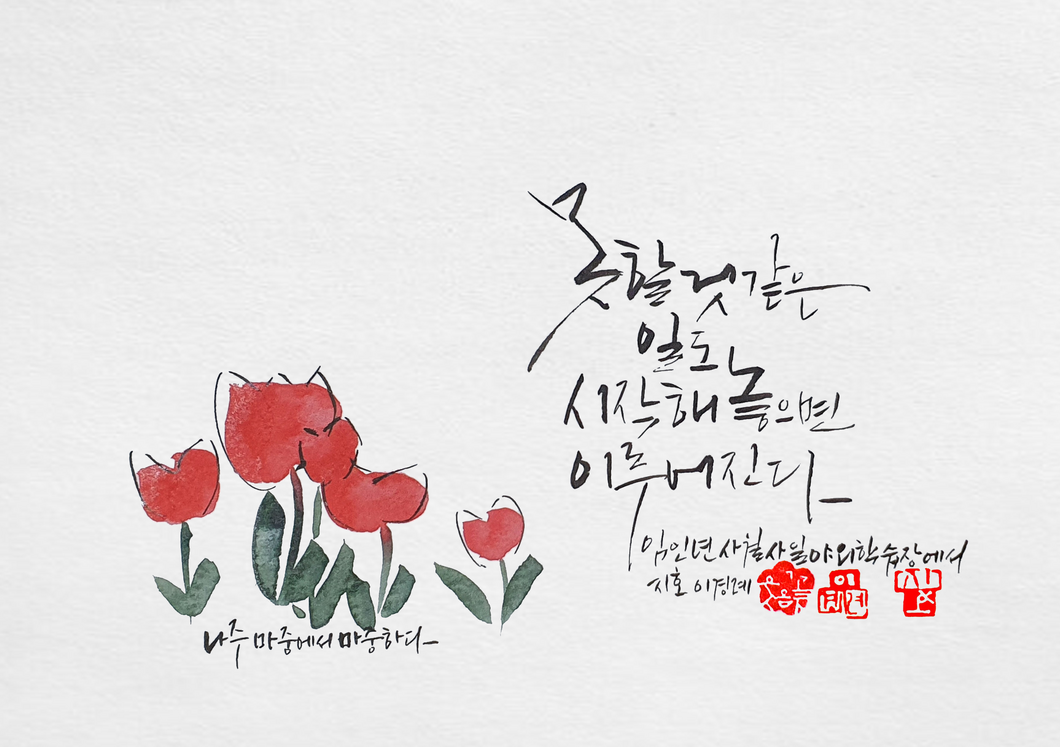 못할것같은
일도
시작해 놓으면
이루어진다
임인년 사월사일 야외학습장에서
지호 이경례
나주 마중에서 마중하다